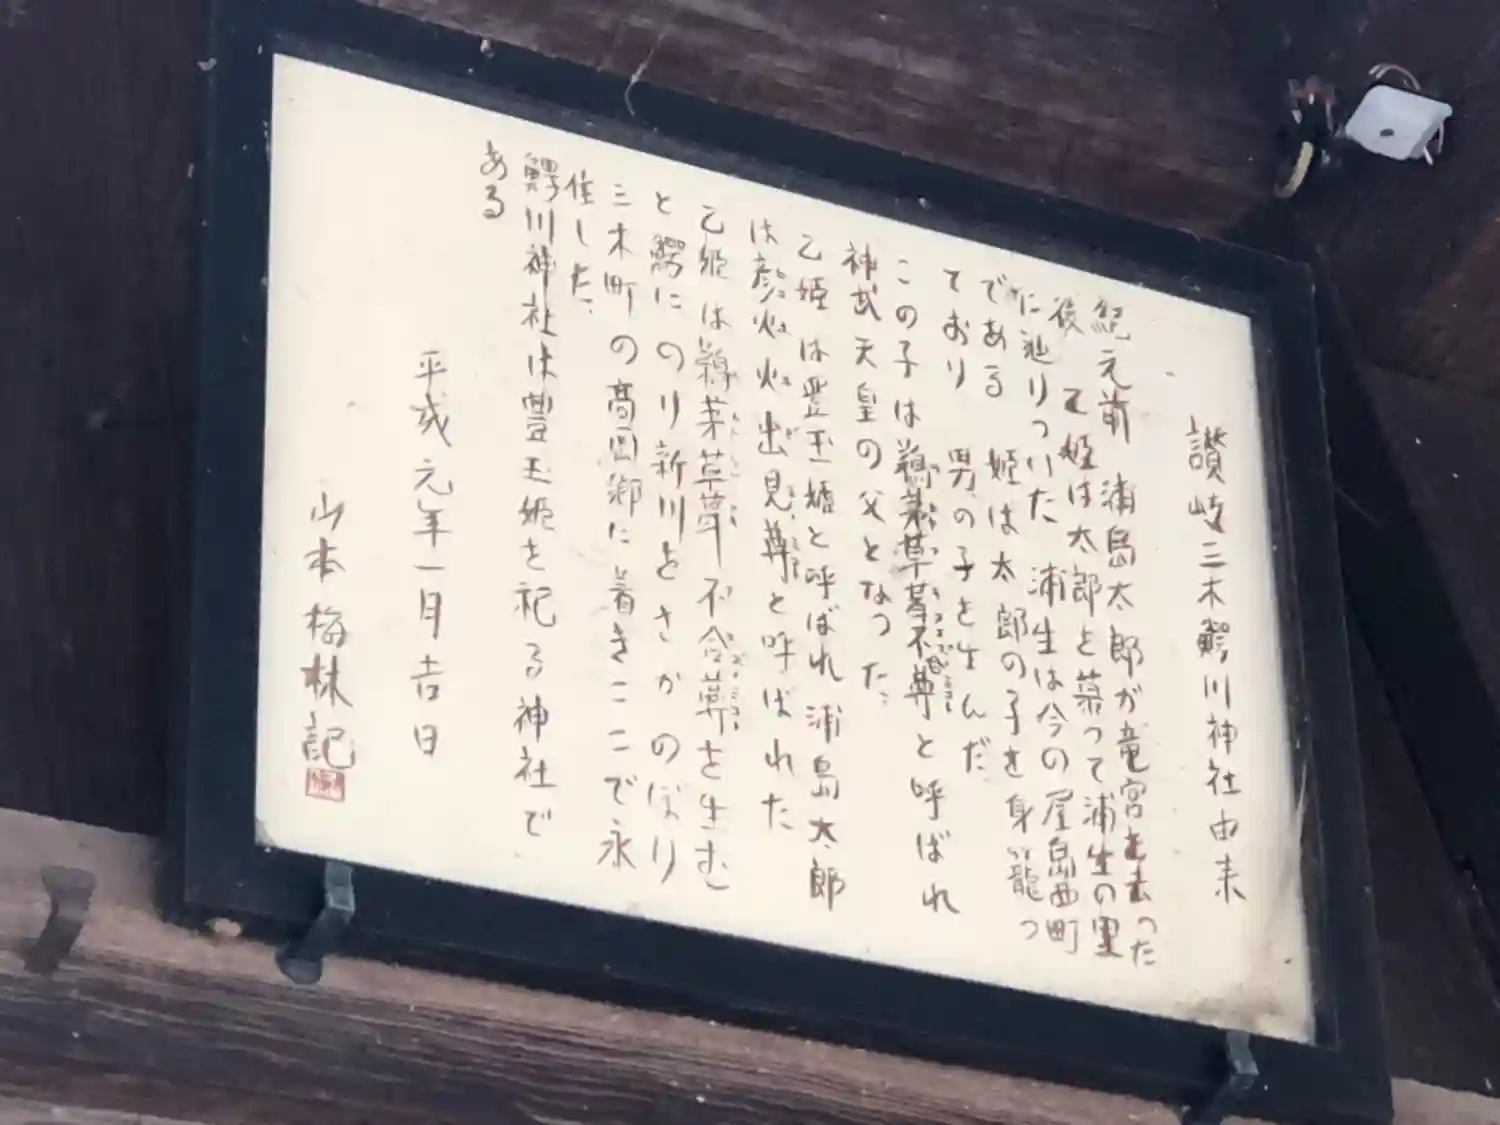 讃岐三木鰐川神社由来
紀元前 浦島太郎が竜宮を去った
後 乙姫は太郎を慕って浦生の里
に辿りついた 浦生は今の屋島西町
である 姫は太郎の子を身籠っ
ており 男の子を生んだ
この子は鵜茅草葺不合尊と呼ばれ
神武天皇の父となった
乙姫は豊玉姫と呼ばれ浦島太郎
は彦火火出見尊と呼ばれた
乙姫は鵜茅草葺不合尊を生む
と鰐にのり新川をさかのぼり
三木町の高岡郷に着きここで永
住した
鰐川神社は豊玉姫を祀る神社で
ある
平成元年一月吉日
山本梅林記